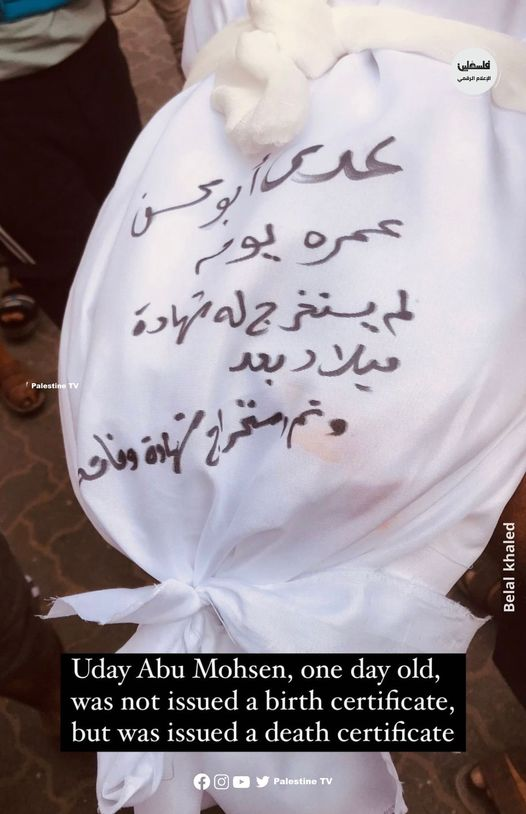 فلسطين
الإعلام الرقمي
عدي أبو محسن
عمره يوم
لم يستخرج له شهادة
ميلاد بعد
وتم استخراج شهادة وفاته
Palestine TV
Belal khaled
Uday Abu Mohsen, one day old,
was not issued a birth certificate,
but was issued a death certificate
Palestine TV